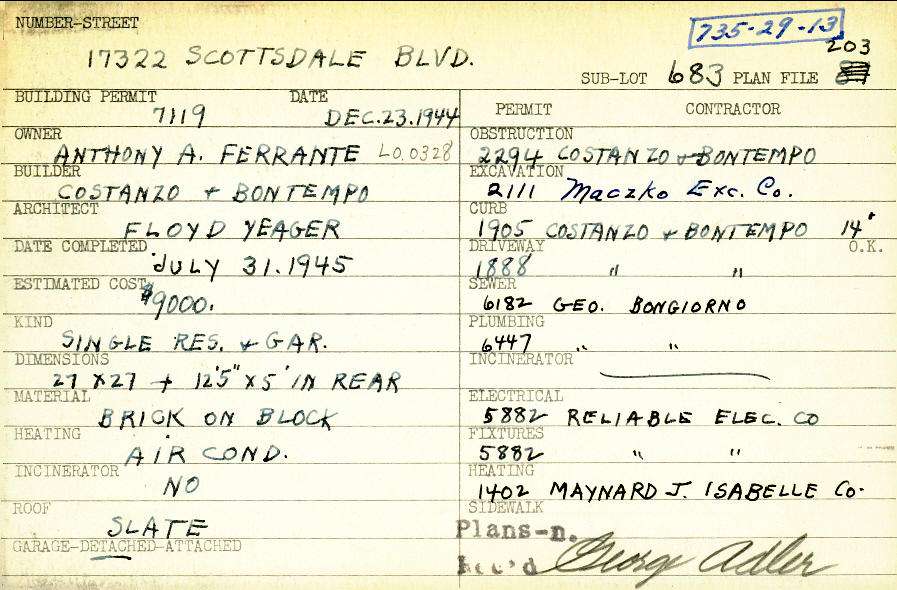 NUMBER-STREET
735-29-13
17322 SCOTTSDALE BLVD.
203
SUB-LOT 683 PLAN FILE
BUILDING PERMIT DATE
7119 DEC.23.1944
OWNER
ANTHONY A. FERRANTE LO.0328
BUILDER
COSTANZO + BONTEMPO
ARCHITECT
FLOYD YEAGER
DATE COMPLETED
JULY 31.1945
ESTIMATED COST
$9000.
KIND
SINGLE RES. + GAR.
DIMENSIONS
27 X 27 + 12'5" X 5' IN REAR
MATERIAL
BRICK ON BLOCK
HEATING
AIR COND.
INCINERATOR
NO
ROOF
SLATE
GARAGE-DETACHED-ATTACHED
PERMIT CONTRACTOR
OBSTRUCTION
2294 COSTANZO + BONTEMPO
EXCAVATION
2111 Maczko Exc. Co.
CURB
1905 COSTANZO + BONTEMPO 14"
DRIVEWAY O.K.
1888 " "
SEWER
6182 GEO. BONGIORNO
PLUMBING
6447 " "
INCINERATOR
ELECTRICAL
5882 RELIABLE ELEC. CO
FIXTURES
5882 " "
HEATING
1402 MAYNARD J. ISABELLE Co.
SIDEWALK
Plans-n.
Rec'd George Adler